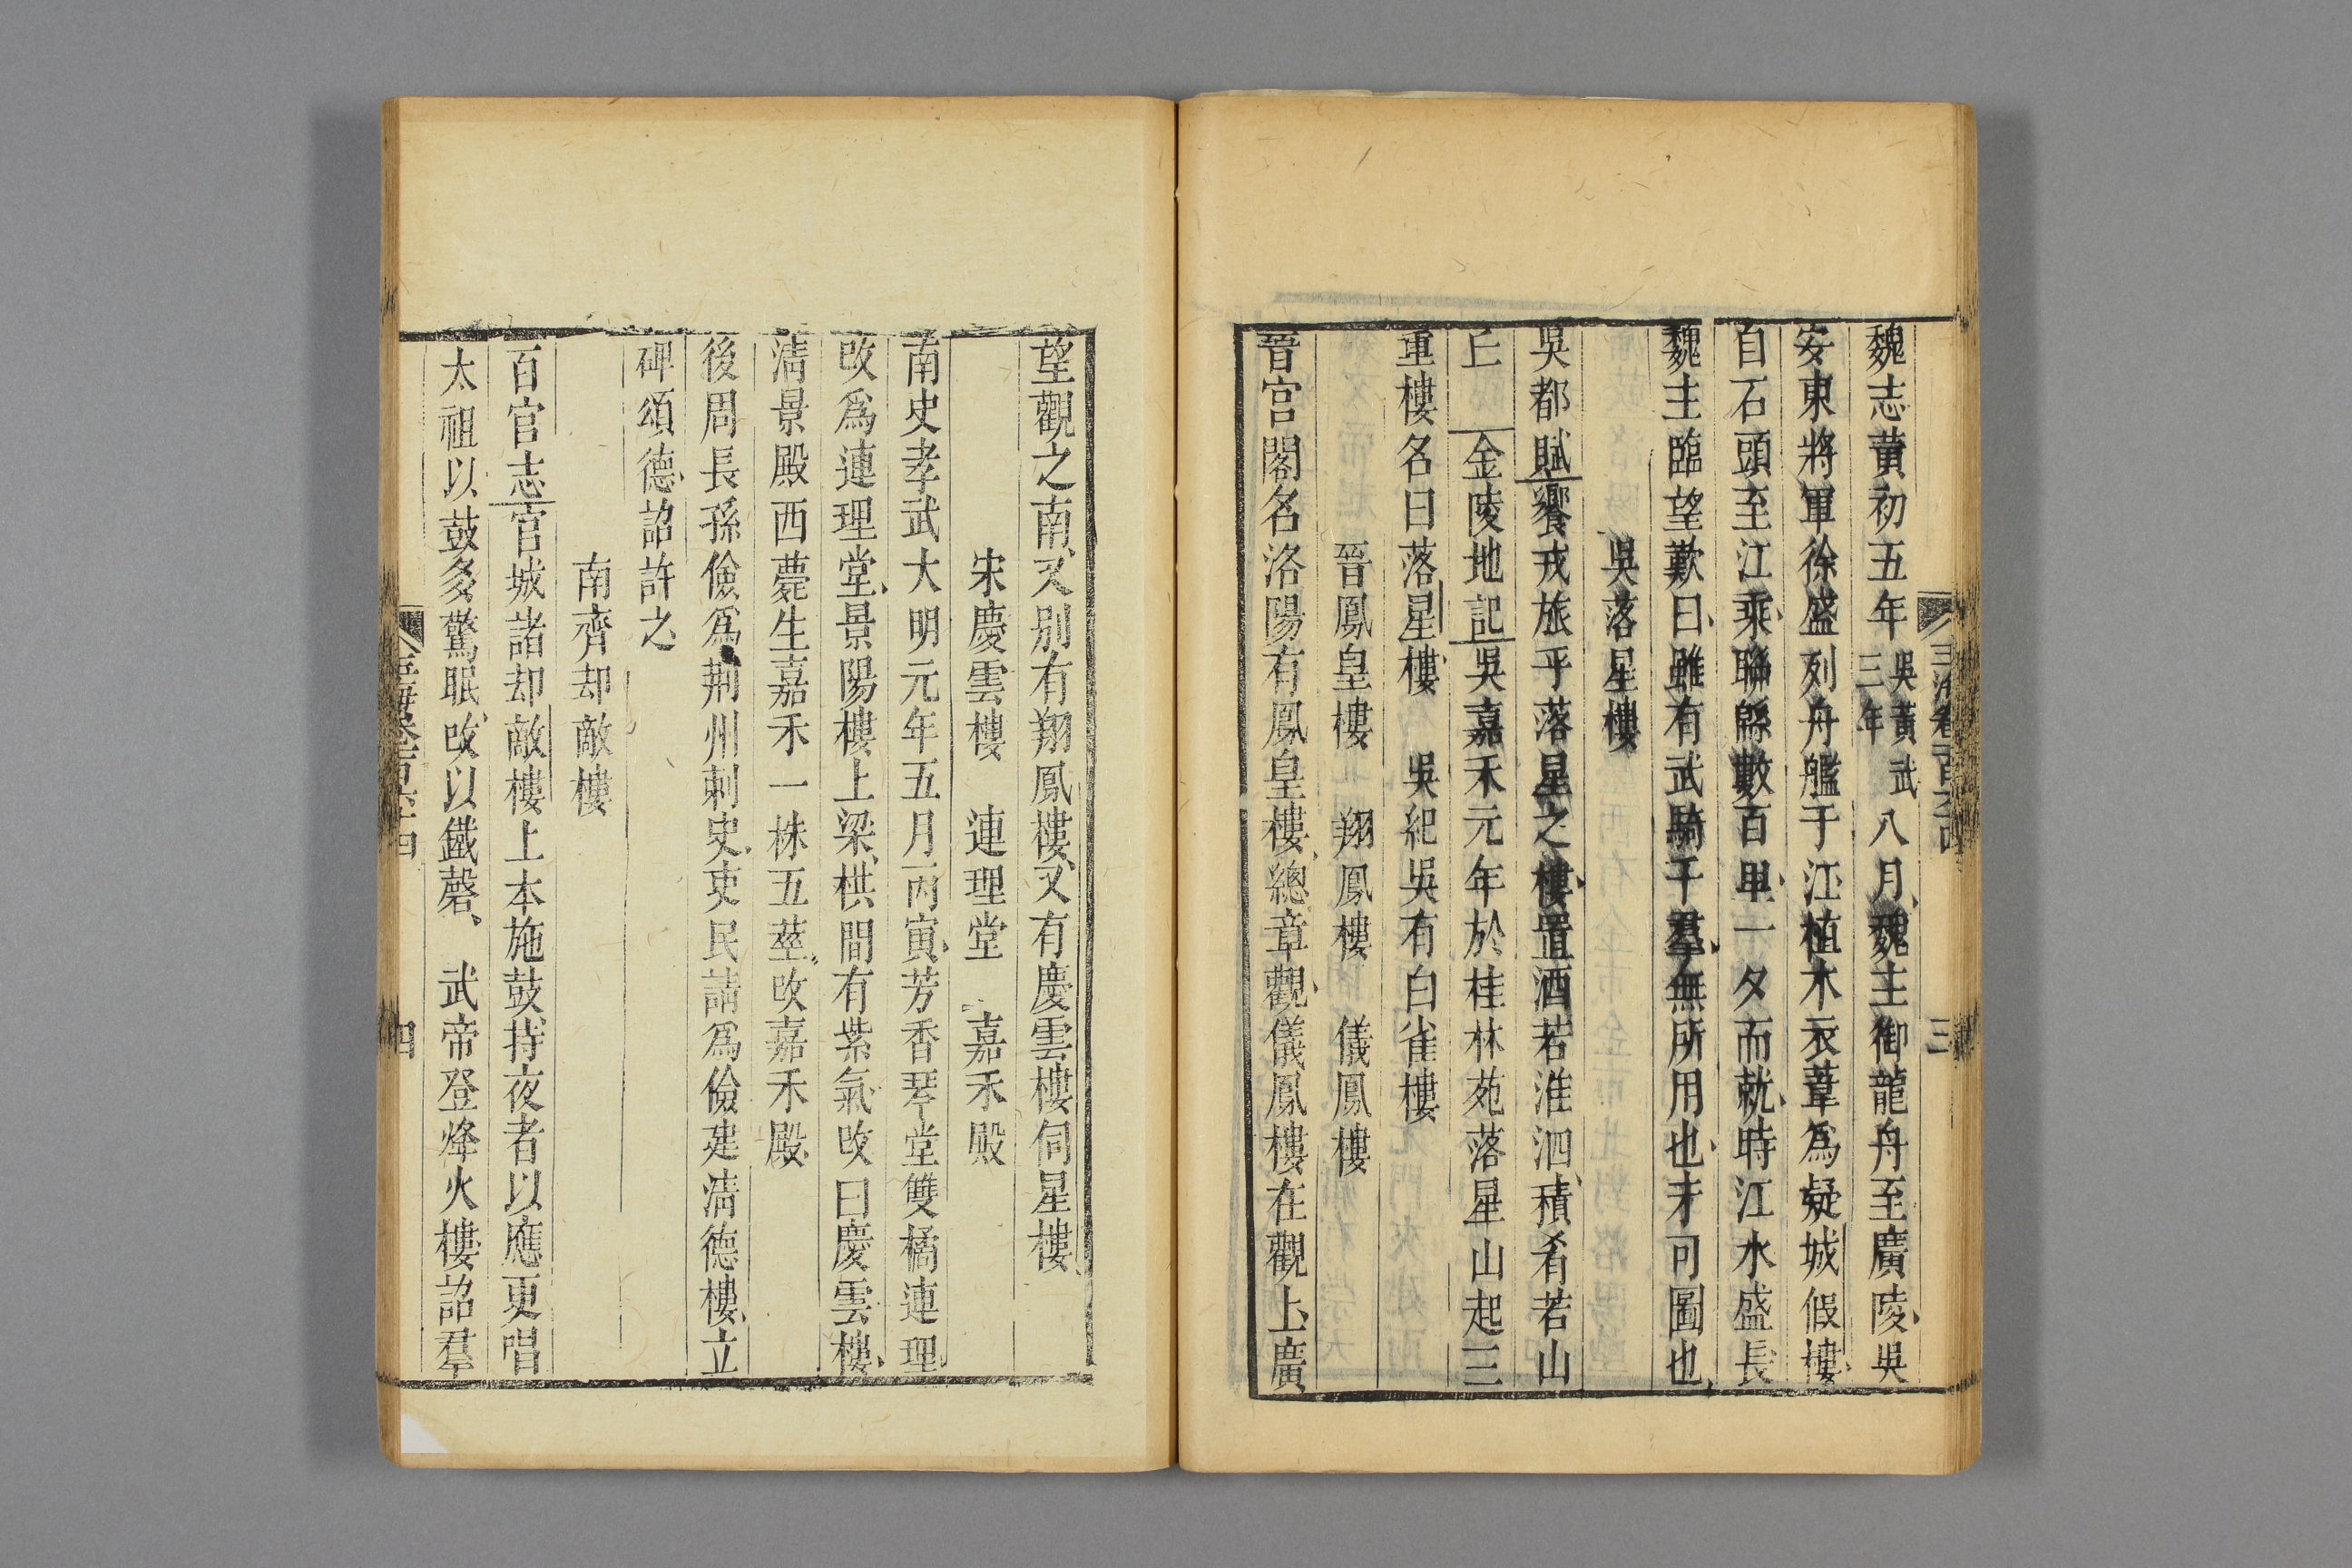 魏志黄初五年吳黄武三年八月魏主御龍舟至廣陵吳
安東將軍徐盛列舟艦于江植木衣葦爲疑城假樓
自石頭至江乘聯緜數百里一夕而就時江水盛長
魏主臨望歎曰雖有武騎千羣無所用也未可圖也
吳落星樓
吳都賦饗戎旅乎落星之樓置酒若淮泗積肴若山
丘 金陵地記吳嘉禾元年於桂林苑落星山起三
重樓名曰落星樓 吳紀吳有白雀樓
晉鳳皇樓 翔鳳樓 儀鳳樓
晉宫閣名洛陽有鳳皇樓總章觀儀鳳樓在觀上廣
玉海卷一百六十四 三
望觀之南又别有翔鳳樓又有慶雲樓伺星樓
宋慶雲樓 連理堂 嘉禾殿
南史孝武大明元年五月丙寅芳香琴堂雙橘連理
改爲連理堂景陽樓上梁栱間有紫氣改曰慶雲樓
清景殿西甍生嘉禾一株五莖改嘉禾殿
後周長孫儉爲荆州刺史吏民請爲儉建清德樓立
碑頌德詔許之
南齊却敵樓
百官志官城諸却敵樓上本施鼓持夜者以應更唱
太祖以鼓多驚眠改以鐵磬 武帝登烽火樓詔羣
玉海卷一百六十四 四